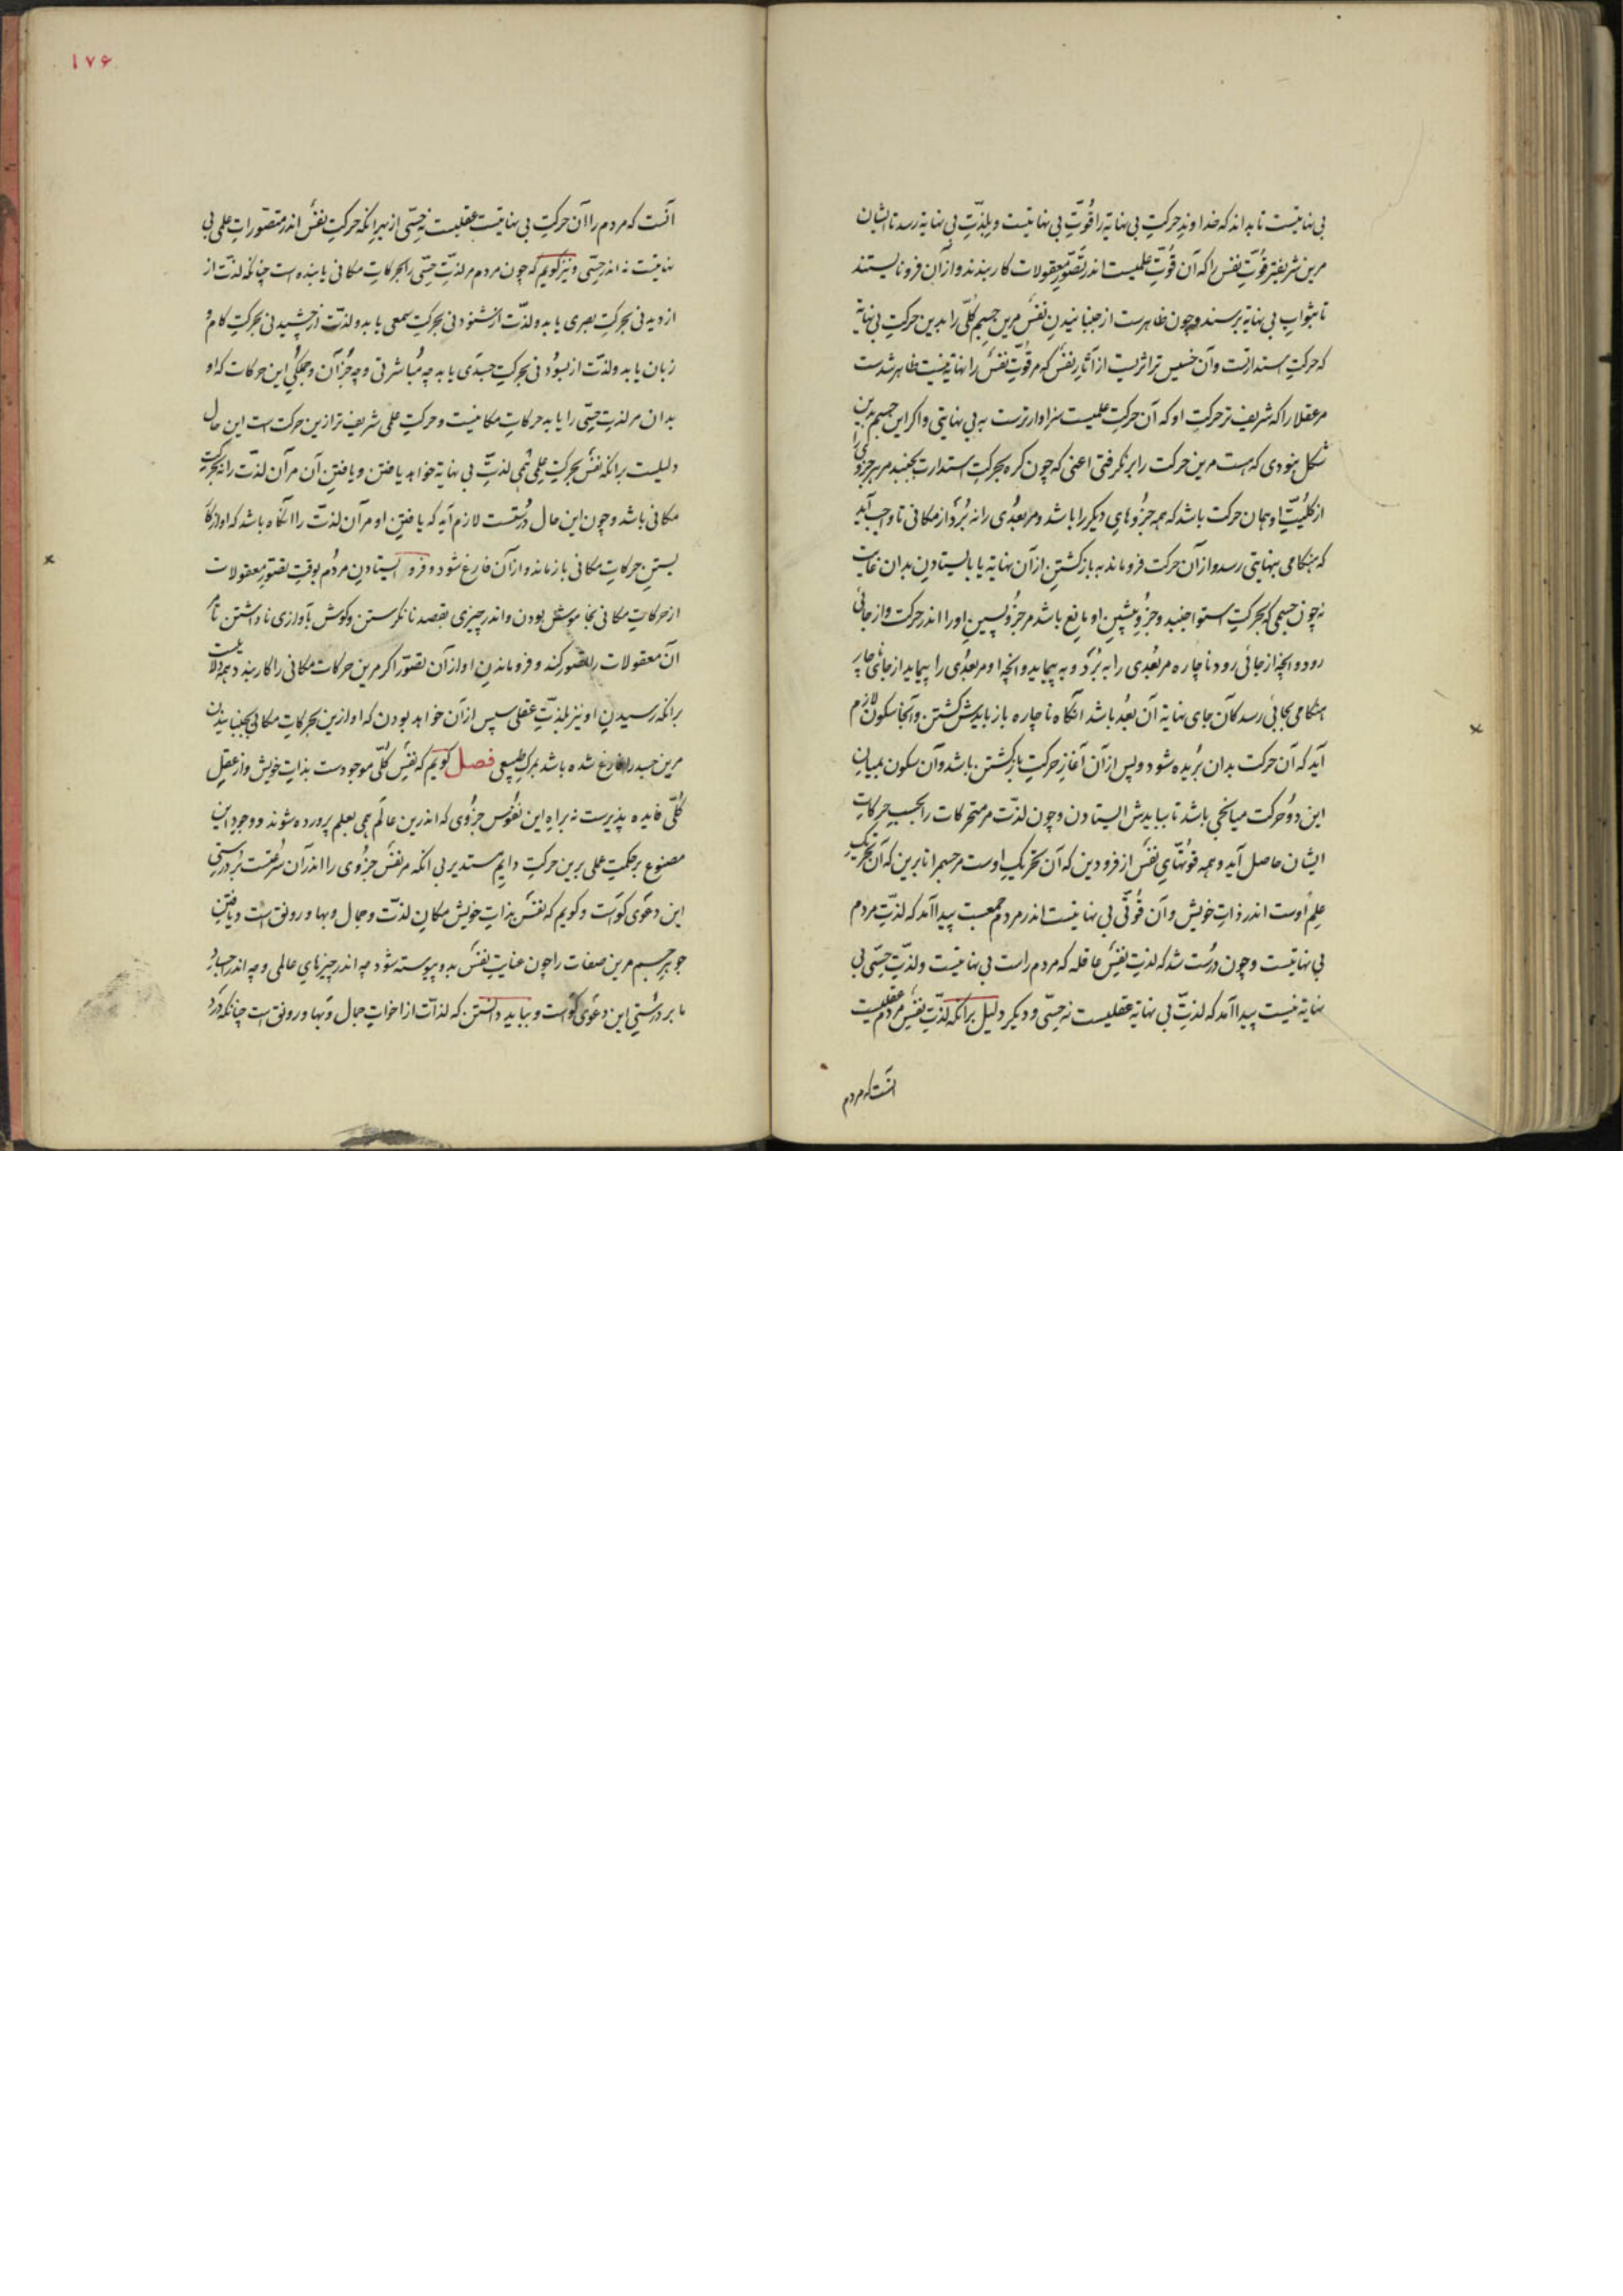 بی نهایتست تا بداند که خداوندِ حرکتِ بی نهایة را قُوّتِ بی نهایتست و بلذّتِ بی نهایة رسد تا ایشان
مرین شریفتر قُوّتِ نفس را که آن قُوّتِ علمیست اندر تصّورِ معقولات کار بندند و از آن فرو نایستند
تا بثوابِ بی نهایة برسند و چون ظاهرست از جنبانیدنِ نفس مرین جسمِ کُلّی را بدین حرکتِ بی نهایة
که حرکتِ استدارتست و آن خسیس تر اثریست از آثارِ نفس که مر قُوّتِ نفس را نهایة نیست ظاهر شدست
مر عقلا را که شریف تر حرکتِ او که آن حرکتِ علمیست سزاوارترست به بی نهایتی و اگر این جسم بدین
شکل نبودی که هست مرین حرکت را برنگرفتی اعنی که چون کره بحرکتِ استدارت بجنبد مر هر جزوی را
از کلّیّتِ او همان حرکت باشد که همه جزوهایِ دیگر را باشد و مر بُعدی را نه بُرّد از مکانی تا واجب آید
که هنگامی بنهایتی رسد و از آن حرکت فرو ماند به باز گشتن از آن نهایة یا بایستادن بدان غایت
نه چون جسمی که بحرکتِ استوا جنبد و جزوِ پیشین او مانع باشد مر جزوِ پسینِ او را اندر حرکت و از جائی
رود و آنچه از جائی رود ناچاره مر بُعدی را به بُرّد و به پیماید و آنچه او مر بُعدی را پیماید از جائی ناچار
هنگامی بجائی رسد کان جای نهایة آن بُعد باشد آنگاه ناچاره باز بایدش گشتن و آنجا سکون لازم
آید که آن حرکت بدان بُریده شود و پس از آن آغازِ حرکتِ باز گشتن باشد و آن سکون بمیانِ
این دو حرکت میانجی باشد تا ببایدش ایستادن و چون لذّت مر متحرکات را بحسبِ حرکاتِ
ایشان حاصل آید و همه قوّتهایِ نفس از فرودین که آن تحریکِ اوست مر جسم را تا برین که آن تحریکِ
علمِ اوست اندر ذاتِ خویش و آن قُوّتی بی نهایتست اندر مردم جمعست پیدا آمد که لذّتِ مردم
بی نهایتست و چون درُست شد که لذّتِ نفسِ عاقله که مردم راست بی نهایتست و لذّتِ حسّی بی
نهایة نیست پیدا آمد که لذّتِ بی نهایة عقلیست نه حسّی و دیگر دلیل بر آنکه لذّتِ نفسِ مردم عقلیست
آنست که مردم
۱۷۶
آنست که مردم را آن حرکتِ بی نهایتست عقلیست نه حسّی از بهر آنکه حرکتِ نفس اندر متصّوراتِ علمی بی
نهایتست نه اندر حسّی و نیز گویم که چون مردم مر لذّتِ حسّی را بحرکاتِ مکانی یابنده است چنانکه لذّت از
از دیدنی بحرکتِ بصری یابد و لذّت از شنودنی بحرکتِ سمعی یابد و لذّت از چشیدنی بحرکتِ کام و
زبان یابد و لذّت از بسودنی بحرکتِ جسدی یابد چه مُباشرتی و چه جُز آن و جملگی این حرکات که او
بدان مر لذّتِ حسّی را یابد حرکاتِ مکانیست و حرکتِ علمی شریف تر ازین حرکت است این حال
دلیلست بر آنکه نفس بحرکتِ علمی همی لذّتِ بی نهایة خواهد یافتن و یافتنِ آن مر آن لذّت را نه بحرکتِ
مکانی باشد و چون این حال درُستست لازم آید که یافتنِ او مر آن لذّت را آنگاه باشد که او از کار
بستنِ حرکاتِ مکانی باز ماند و از آن فارغ شود و فرو ایستادنِ مردُم بوقتِ تصّورِ معقولات
از حرکاتِ مکانی بخاموش بودن و اندر چیزی بقصد نانگرستن و گوش بآوازی ناداشتن تا مر
آن معقولات را تصّور کند و فرو ماندنِ او از آن تصّور اگر مرین حرکات مکانی را کار بندد همه دلالتست
بر آنکه رسیدنِ او نیز بلذّتِ عقلی سپس از آن خواهد بودن که او ازین بحرکاتِ مکانی بجنبانیدن
مرین جسد را فارغ شده باشد بمرگِ طبیعی فصل گویم که نفسِ کُلّی موجودست بذاتِ خویش و از عقلِ
کُلّی فایده پذیرست نه براهِ این نفوس جزوی که اندرین عالَم همی بعلم پرورده شوند و وجودِ این
مصنوعِ بر حکمتِ عملی برین حرکتِ دایمِ مستدیر بی آنکه مر نفس جزوی را اندر آن شرکتست بر درستی
این دعوی گواست و گویم که نفس بذاتِ خویش مکانِ لذّت و جمال و بها و رونق است و یافتنِ
جوهرِ جسم مرین صفات را چون عنایتِ نفس بدو پیوسته شود چه اندر چیزهایِ عالمی و چه اندر جسدِ
ما بر درُستیِ این دعوی گواست و بباید دانستن که لذّات از اخواتِ جمال و بها و رونق است چنانکه درد